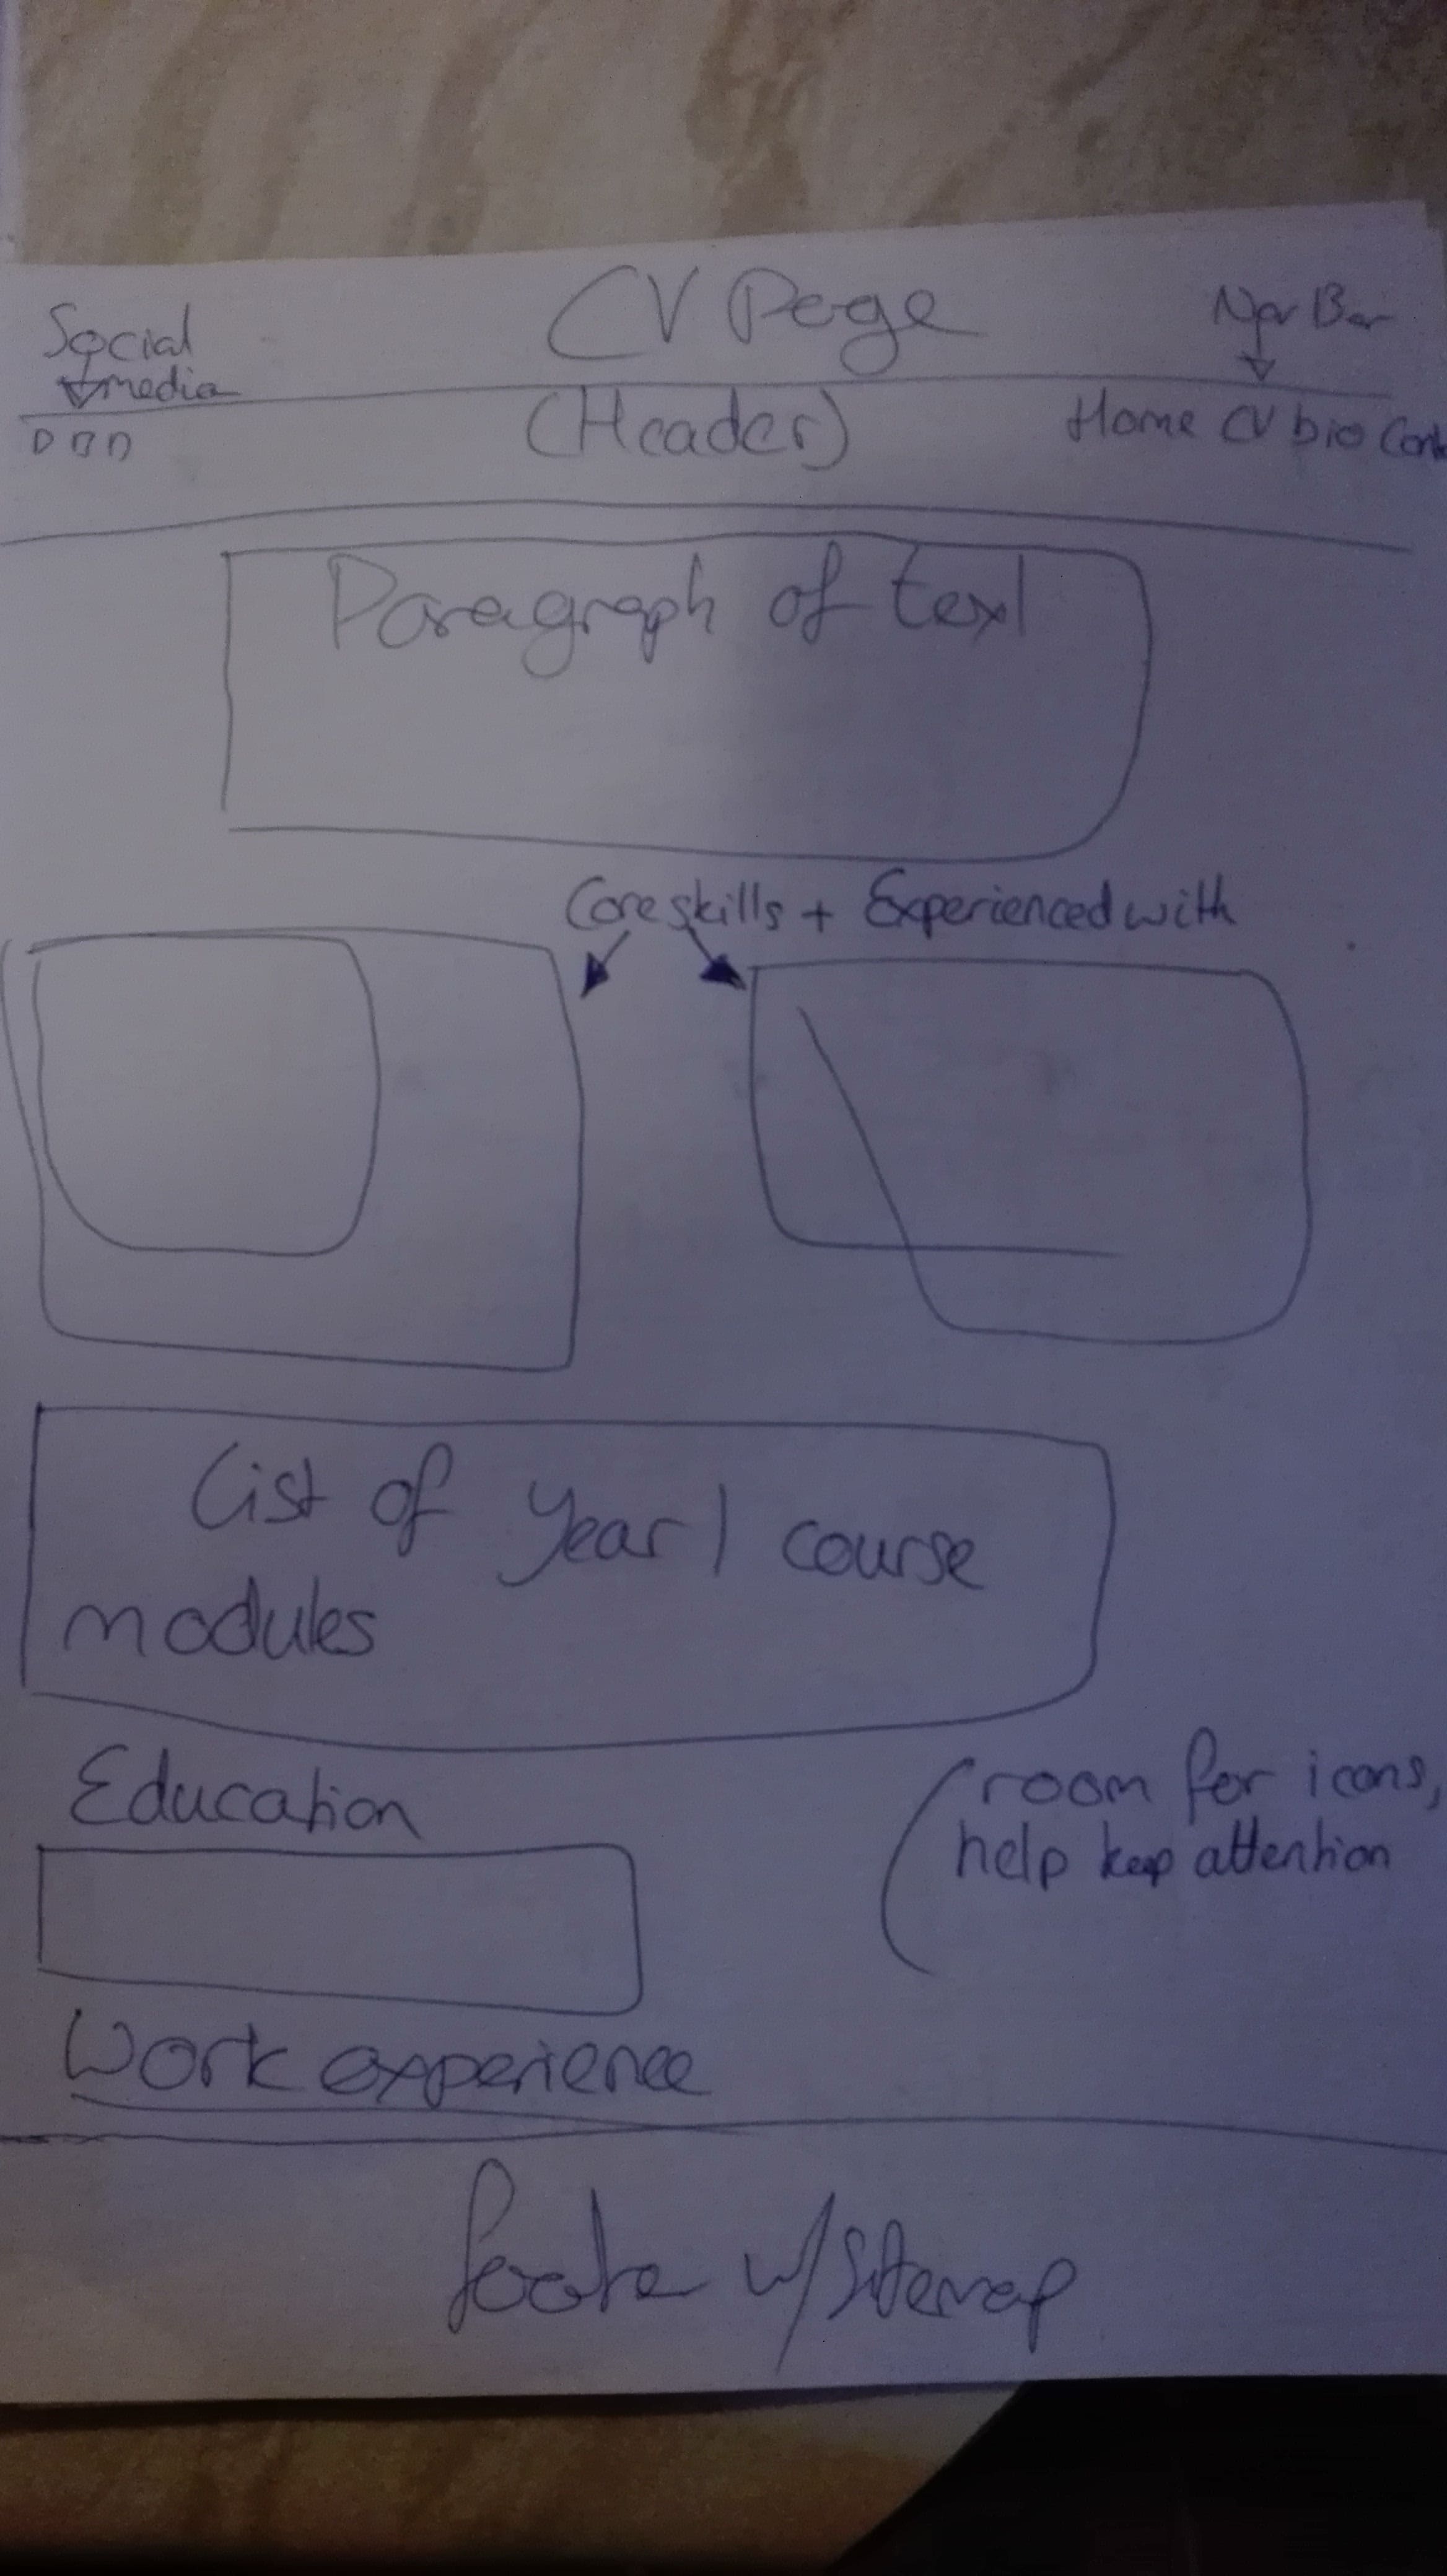 CV Page
Social
media
Nav Bar
(Header)
Home CV bio Cont
Paragraph of text
Core skills + Experienced with
List of Year 1 course
modules
Education
room for icons,
help keep attention
Work experience
footer w/ Sitemap